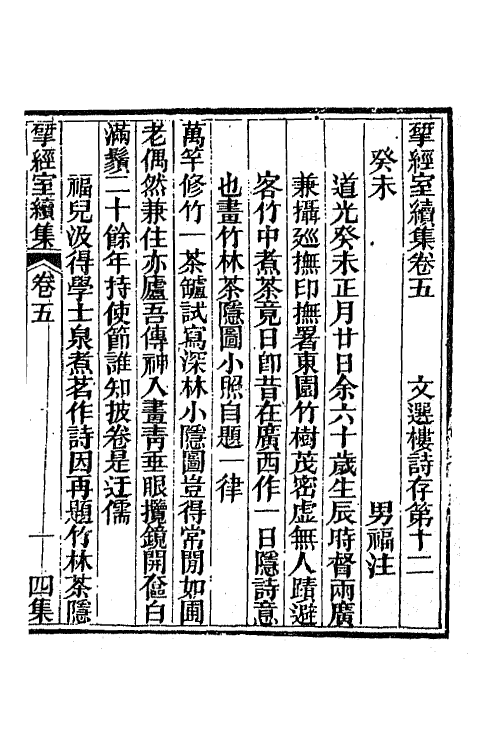 揅經室續集卷五 文選樓詩存第十二
癸未 男福注
道光癸未正月廿日余六十歲生辰時督兩廣
兼攝廵撫印撫署東園竹樹茂密虛無人蹟避
客竹中煮茶竟日卽昔在廣西作一日隱詩意
也畫竹林茶隱圖小照自題一律
萬竿修竹一茶鑪試寫深林小隱圖豈得常閒如圃
老偶然兼住亦廬吾傳神入畫靑垂眼攬鏡開奩白
滿鬚二十餘年持使節誰知披卷是迂儒
福兒汲得學士泉煮茗作詩因再題竹林茶隱
揅經室續集 卷五 一 四集